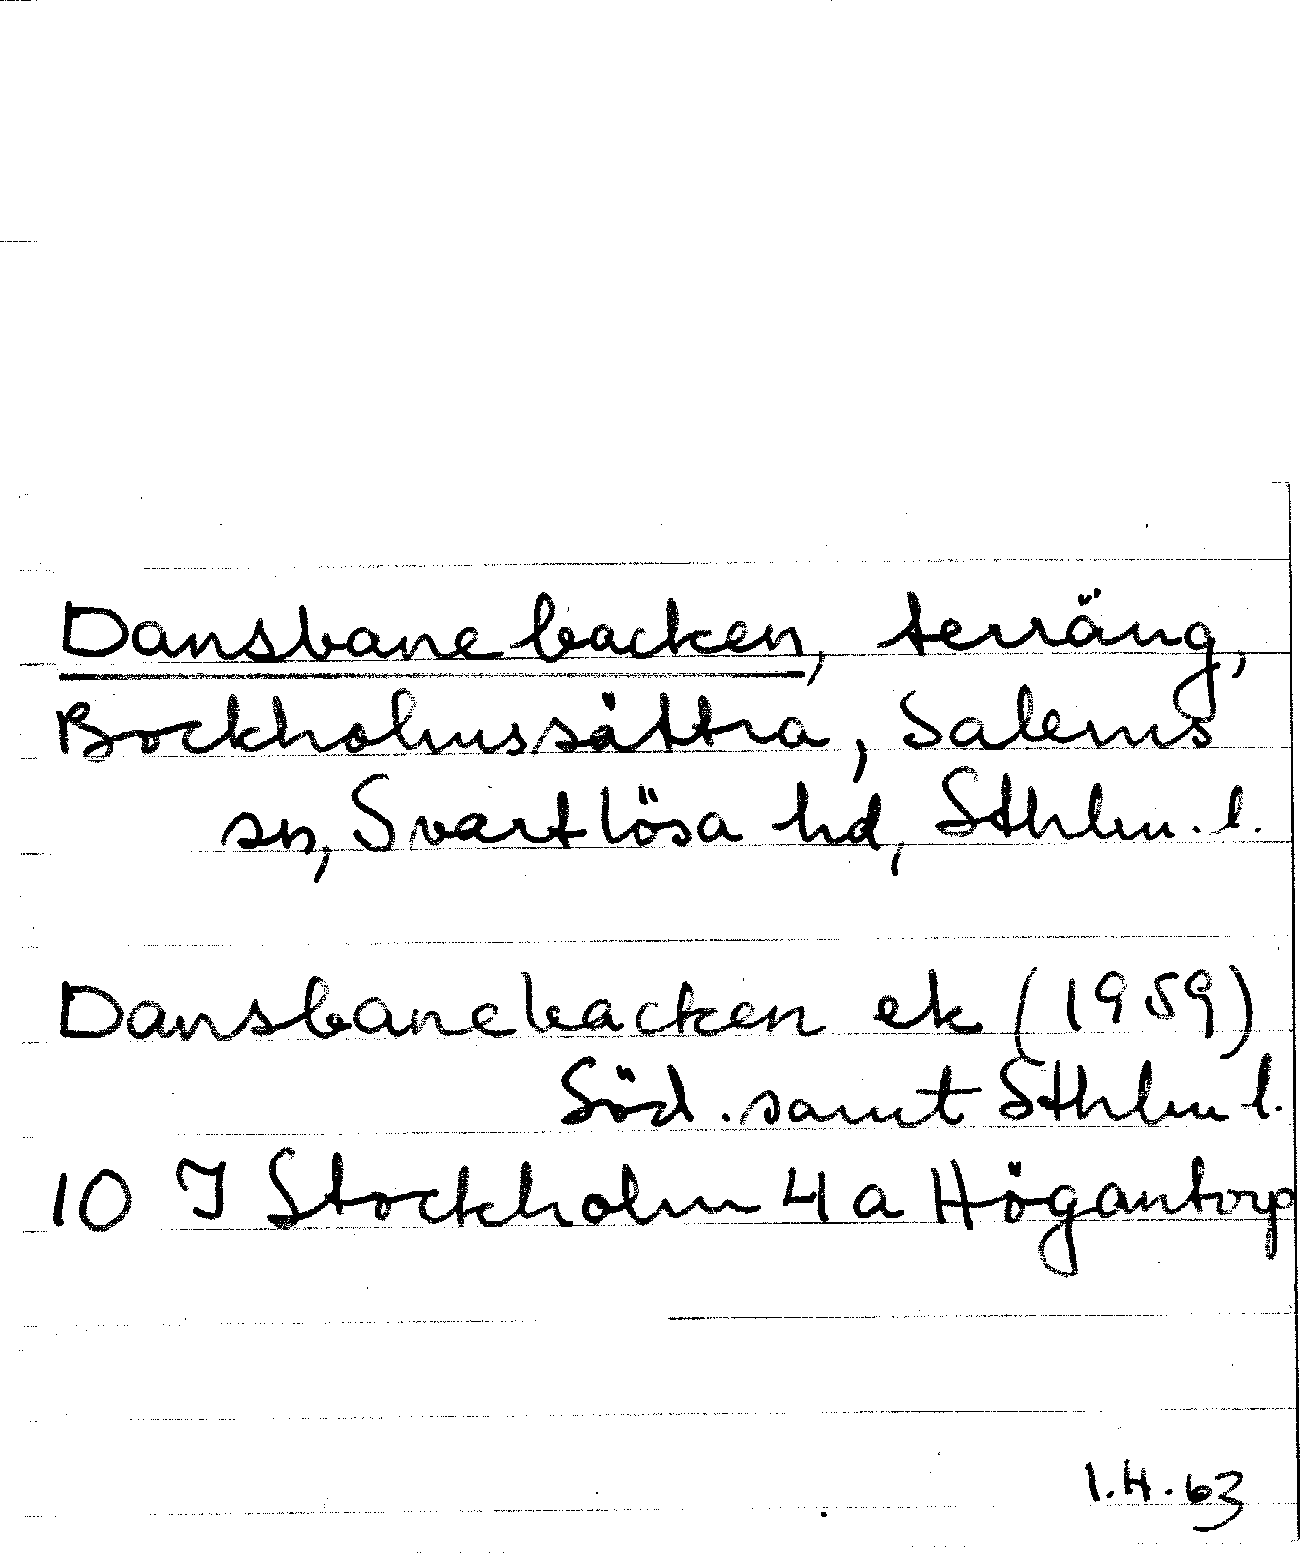 Dansbanebacken, terräng,
Bockholmssättra, Salems
sn, Svartlösa hd, Sthlm. l.
Dansbanebacken ek (1959)
Söd. samt Sthlm l.
10 I Stockholm 4a Högantorp
I.H. 63